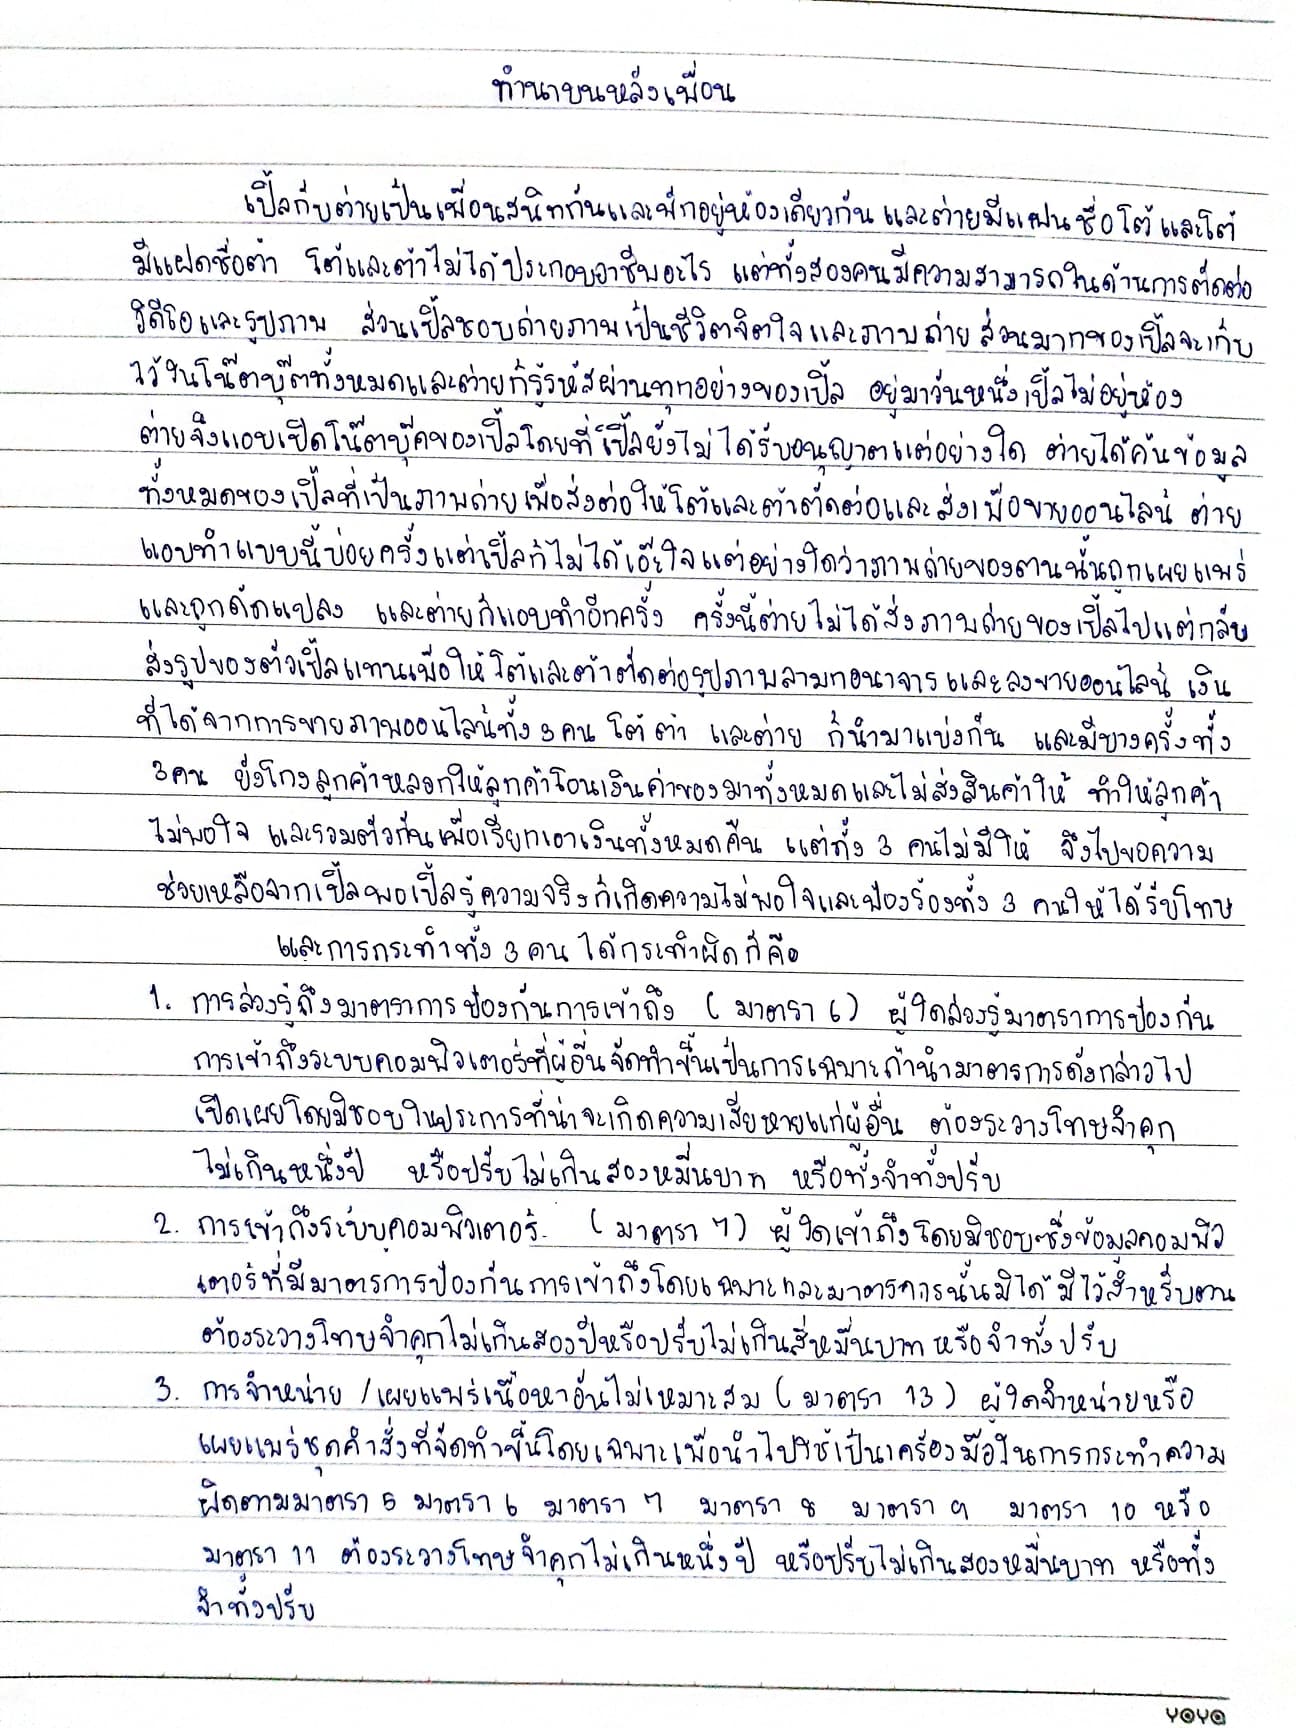 ทำนาบนหลังเพื่อน
เปิ้ลกับต่ายเป็นเพื่อนสนิทกันและพักอยู่ห้องเดียวกัน และต่ายมีแฟนชื่อโต้ และโต้
มีแฝดชื่อต้า โต้และต้าไม่ได้ประกอบอาชีพอะไร แต่ทั้งสองคนมีความสามารถในด้านการตัดต่อ
วิดีโอและรูปภาพ ส่วนเปิ้ลชอบถ่ายภาพเป็นชีวิตจิตใจและภาพถ่ายส่วนมากของเปิ้ลจะเก็บ
ไว้ในโน๊ตบุ๊ตทั้งหมดและต่ายก็รู้รหัสผ่านทุกอย่างของเปิ้ล อยู่มาวันหนึ่งเปิ้ลไม่อยู่ห้อง
ต่ายจึงแอบเปิดโน๊ตบุ๊คของเปิ้ลโดยที่เปิ้ลยังไม่ได้รับอนุญาตแต่อย่างใด ต่ายได้ค้นข้อมูล
ทั้งหมดของเปิ้ลที่เป็นภาพถ่ายเพื่อส่งต่อให้โต้และต้าตัดต่อและส่งเพื่อขายออนไลน์ ต่าย
แอบทำแบบนี้บ่อยครั้งแต่เปิ้ลก็ไม่ได้เอ๊ะใจแต่อย่างใดว่าภาพถ่ายของตนนั้นถูกเผยแพร่
และถูกดัดแปลง และต่ายก็แอบทำอีกครั้ง ครั้งนี้ต่ายไม่ได้ส่งภาพถ่ายของเปิ้ลไปแต่กลับ
ส่งรูปของตัวเปิ้ลแทนเพื่อให้โต้และต้าตัดต่อรูปภาพลามกอนาจารและลงขายออนไลน์ เงิน
ที่ได้จากการขายภาพออนไลน์ทั้ง 3 คน โต้ ต้า และต่าย ก็นำมาแบ่งกัน และมีบางครั้งทั้ง
3 คน ยังโกงลูกค้าหลอกให้ลูกค้าโอนเงินค่าของมาทั้งหมดและไม่ส่งสินค้าให้ ทำให้ลูกค้า
ไม่พอใจ และรวมตัวกันเพื่อเรียกเอาเงินทั้งหมดคืน แต่ทั้ง 3 คนไม่มีให้ จึงไปขอความ
ช่วยเหลือจากเปิ้ลพอเปิ้ลรู้ความจริงก็เกิดความไม่พอใจและฟ้องร้องทั้ง 3 คนให้ได้รับโทษ
และการกระทำทั้ง 3 คน ได้กระทำผิดก็คือ
1. การล่วงรู้ถึงมาตราการป้องกันการเข้าถึง ( มาตรา 6 ) ผู้ใดล่วงรู้มาตราการป้องกัน
การเข้าถึงระบบคอมพิวเตอร์ที่ผู้อื่นจัดทำขึ้นเป็นการเฉพาะถ้านำมาตรการดังกล่าวไป
เปิดเผยโดยมิชอบในประการที่น่าจะเกิดความเสียหายแก่ผู้อื่น ต้องระวางโทษจำคุก
ไม่เกินหนึ่งปี หรือปรับไม่เกินสองหมื่นบาท หรือทั้งจำทั้งปรับ
2. การเข้าถึงระบบคอมพิวเตอร์. ( มาตรา 7 ) ผู้ใดเข้าถึงโดยมิชอบซึ่งข้อมูลคอมพิว
เตอร์ที่มีมาตรการป้องกันการเข้าถึงโดยเฉพาะและมาตรการนั้นมิได้มีไว้สำหรับตน
ต้องระวางโทษจำคุกไม่เกินสองปีหรือปรับไม่เกินสี่หมื่นบาท หรือจำทั้งปรับ
3. การจำหน่าย /เผยแพร่เนื้อหาอันไม่เหมาะสม ( มาตรา 13 ) ผู้ใดจำหน่ายหรือ
เผยแพร่ชุดคำสั่งที่จัดทำขึ้นโดยเฉพาะเพื่อนำไปใช้เป็นเครื่องมือในการกระทำความ
ผิดตามมาตรา 5 มาตรา 6 มาตรา 7 มาตรา 8 มาตรา 9 มาตรา 10 หรือ
มาตรา 11 ต้องระวางโทษจำคุกไม่เกินหนึ่งปี หรือปรับไม่เกินสองหมื่นบาท หรือทั้ง
จำทั้งปรับ
YOYO